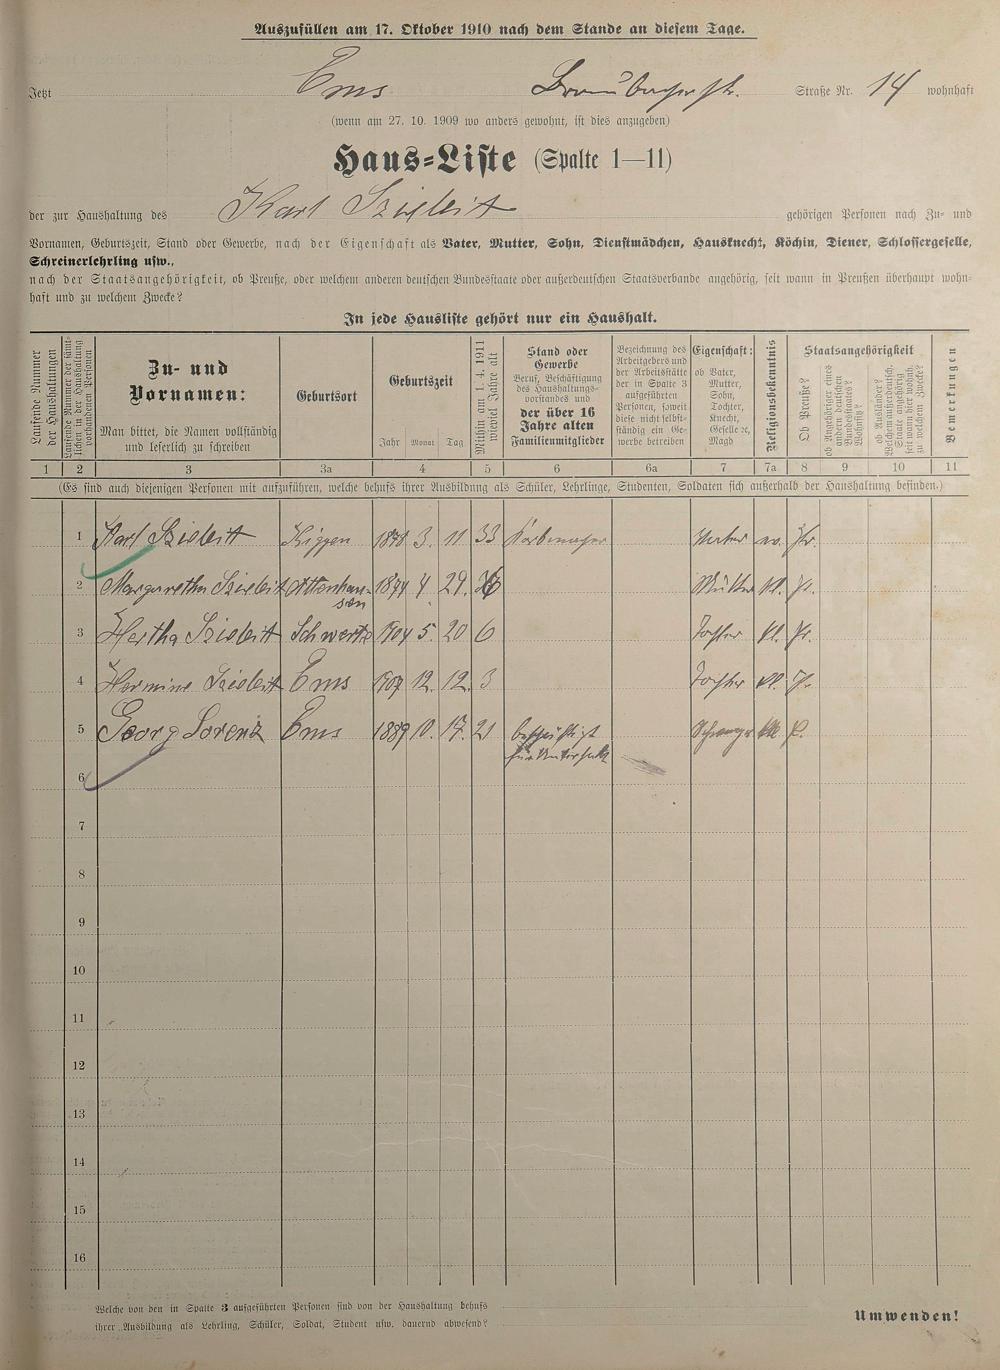 Auszufüllen am 17. Oktober 1910 nach dem Stande an diesem Tage.
Jetzt Ems Braubacherstr. Straße Nr. 14 wohnhaft
(wenn am 27. 10. 1909 wo anders gewohnt, ist dies anzugeben)
Haus=Liste (Spalte 1—11)
der zur Haushaltung des Karl Szieleit gehörigen Personen nach Zu- und
Vornamen, Geburtszeit, Stand oder Gewerbe, nach der Eigenschaft als Vater, Mutter, Sohn, Dienstmädchen, Hausknecht, Köchin, Diener, Schlossergeselle,
Schreinerlehrling usw.,
nach der Staatsangehörigkeit, ob Preuße, oder welchem anderen deutschen Bundesstaate oder außerdeutschen Staatsverbande angehörig, seit wann in Preußen überhaupt wohn-
haft und zu welchem Zwecke?
In jede Hausliste gehört nur ein Haushalt.
Laufende Nummer
der Haushaltungen
Laufende Nummer der sämt-
lichen in der Haushaltung
vorhandenen Personen
Zu- und
Vornamen:
Man bittet, die Namen vollständig
und leserlich zu schreiben
Geburtsort
Geburtszeit
Jahr Monat Tag
Mithin am 1. 4. 1911
wieviel Jahre alt
Stand oder
Gewerbe
Beruf, Beschäftigung
des Haushaltungs-
vorstandes und
der über 16
Jahre alten
Familienmitglieder
Bezeichnung des
Arbeitgebers und
der Arbeitsstätte
der in Spalte 3
aufgeführten
Personen, soweit
diese nicht selbst-
ständig ein Ge-
werbe betreiben
Eigenschaft:
ob Vater,
Mutter,
Sohn,
Tochter,
Knecht,
Geselle ꝛc,
Magd
Religionsbekenntnis
Staatsangehörigkeit
Ob Preuße?
ob Angehöriger eines
andern deutschen
Bundesstaates?
Wohnsitz?
ob Ausländer?
Welchem außerdeutsch.
Staate angehörig
seit wann hier wohnh.
zu welchem Zwecke?
Bemerkungen
1 2 3 3a 4 5 6 6a 7 7a 8 9 10 11
(Es sind auch diejenigen Personen mit aufzuführen, welche behufs ihrer Ausbildung als Schüler, Lehrlinge, Studenten, Soldaten sich außerhalb der Haushaltung befinden.)
1 Karl Szieleit 1878 3. 11. 33 Korbmacher Vater Pr.
2 Margaretha Szieleit Attenhau-
sen 1874 4 29. Mutter kt. Pr.
3 Hertha Szieleit Schwerte 1904 5. 20 6 Tochter kt. Pr.
4 Hermine Szieleit Ems 1907 12. 12. 3 Tochter kt. Pr.
5 Georg Lorenz Ems 1889 10. 17. 21 P.
6
7
8
9
10
11
12
13
14
15
16
Welche von den in Spalte 3 aufgeführten Personen sind von der Haushaltung behufs
ihrer Ausbildung als Lehrling, Schüler, Soldat, Student usw. dauernd abwesend?
Umwenden!